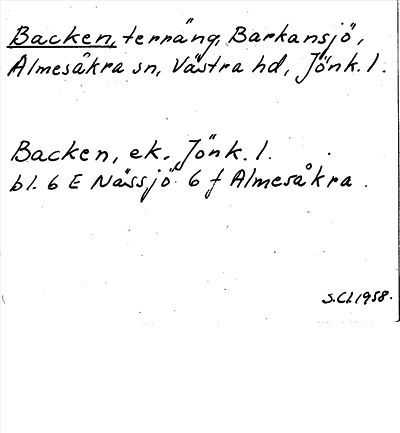 Backen, terräng, Barkansjö,
Almesåkra sn, Västra hd, Jönk. l.
Backen, ek. Jönk. l.
bl. 6 E Nässjö 6 f Almesåkra.
S.Cl.1958.